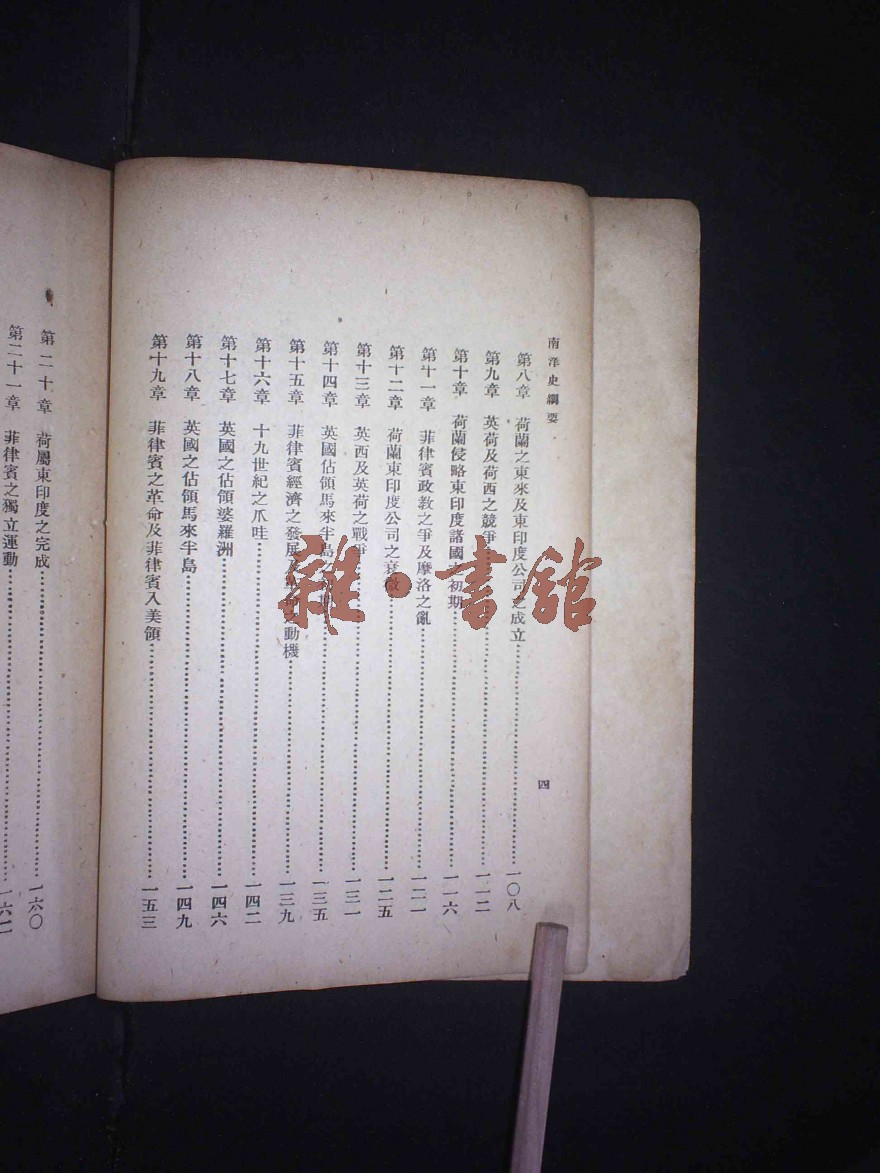 南洋史綱要
四
第八章 荷蘭之東來及東印度公司之成立……一〇八
第九章 英荷及荷西之競爭……一一二
第十章 荷蘭侵略東印度諸國之初期……一一六
第十一章 菲律賓政教之爭及摩洛之亂……一二一
第十二章 荷蘭東印度公司之衰微……一二五
第十三章 英西及英荷之戰爭……一三一
第十四章 英國佔領馬來半島之……一三五
第十五章 菲律賓經濟之發展及革命之動機……一三九
第十六章 十九世紀之爪哇……一四二
第十七章 英國之佔領婆羅洲……一四六
第十八章 英國之佔領馬來半島……一四九
第十九章 菲律賓之革命及菲律賓入美領……一五三
第二十章 荷屬東印度之完成……一六〇
第二十一章 菲律賓之獨立運動……一六二
雜·書館